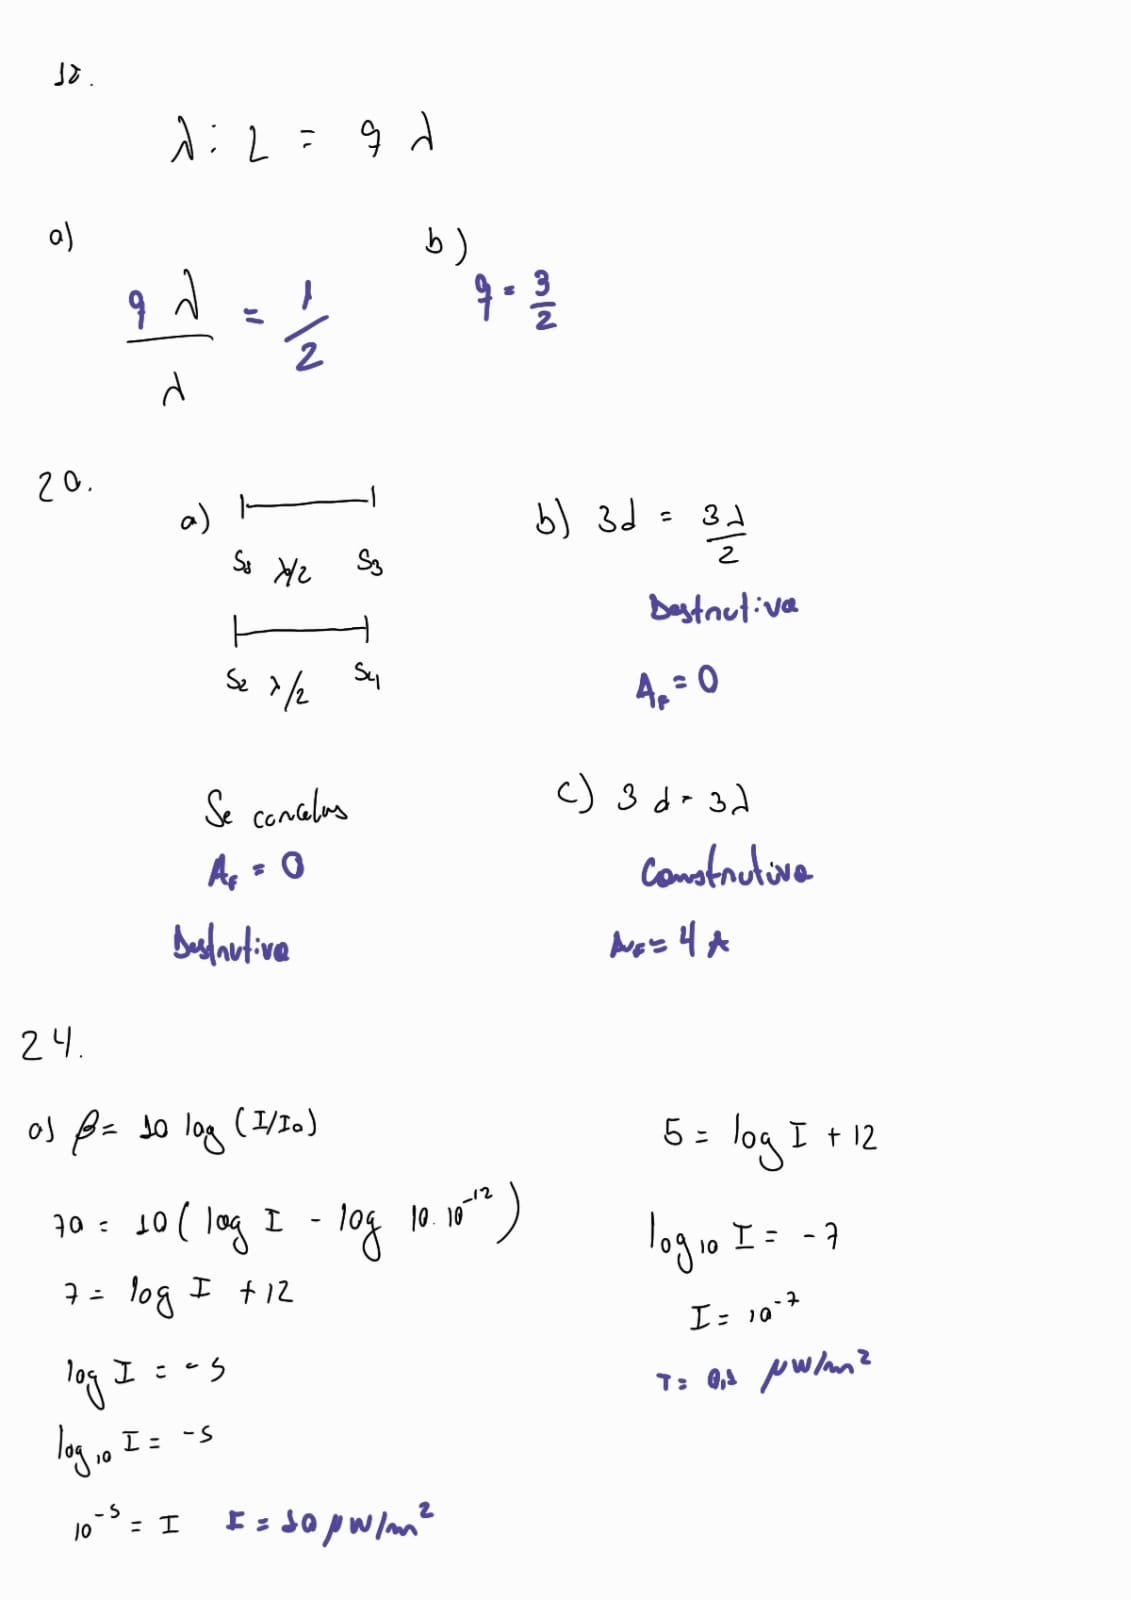 18.
λ: L = q λ
a)
q λ / λ = 1/2
b)
q = 3/2
20.
a)
S1 λ/2 S3
S2 λ/2 S4
Se cancelas
AF = 0
Destrutiva
b) 3d = 3λ/2
Destrutiva
AF = 0
c) 3d = 3λ
Construtiva
AF = 4A
24.
a) β = 10 log (I/I0)
70 = 10 ( log I - log 10.10^-12 )
7 = log I + 12
log I = -5
log10 I = -5
10^-5 = I I = 10 μW/m²
5 = log I + 12
log10 I = -7
I = 10^-7
I = 0,1 μW/m²